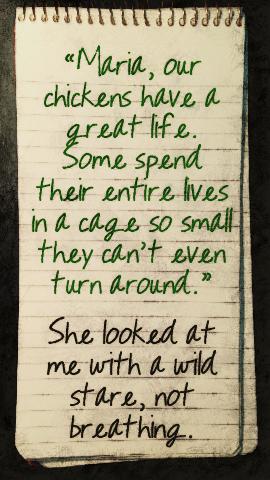 “Maria, our
chickens have a
great life.
Some spend
their entire lives
in a cage so small
they can't even
turn around.”
She looked at
me with a wild
stare, not
breathing.